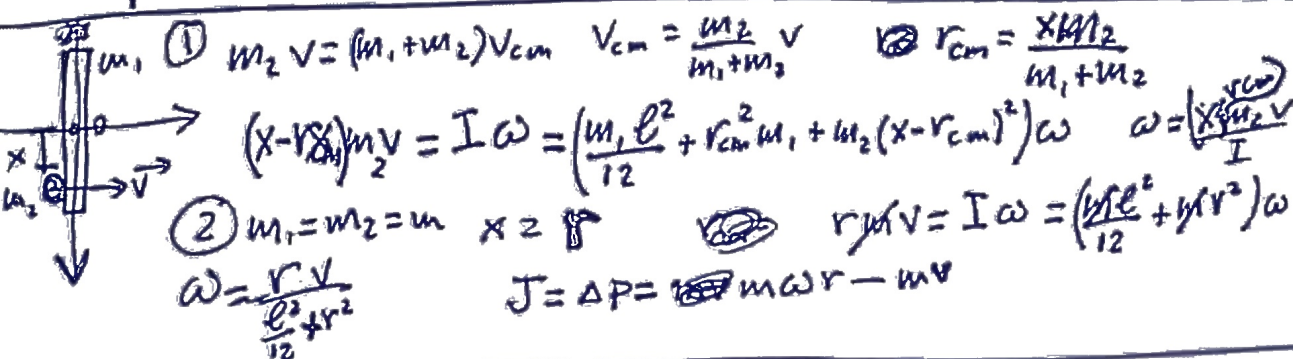 m₁ ① m₂ v = (m₁+m₂) v_cm v_cm = m₂/(m₁+m₂) v r_cm = x m₂/(m₁+m₂)
(x-r_cm) m₂ v = I ω = (m₁ℓ²/12 + r_cm² m₁ + m₂(x-r_cm)²) ω
x
m₂ v⃗
② m₁=m₂=m r m v = I ω = (mℓ²/12 + m r²) ω
ω = r v/(ℓ²/12 + r²) J = Δp = mωr - mv